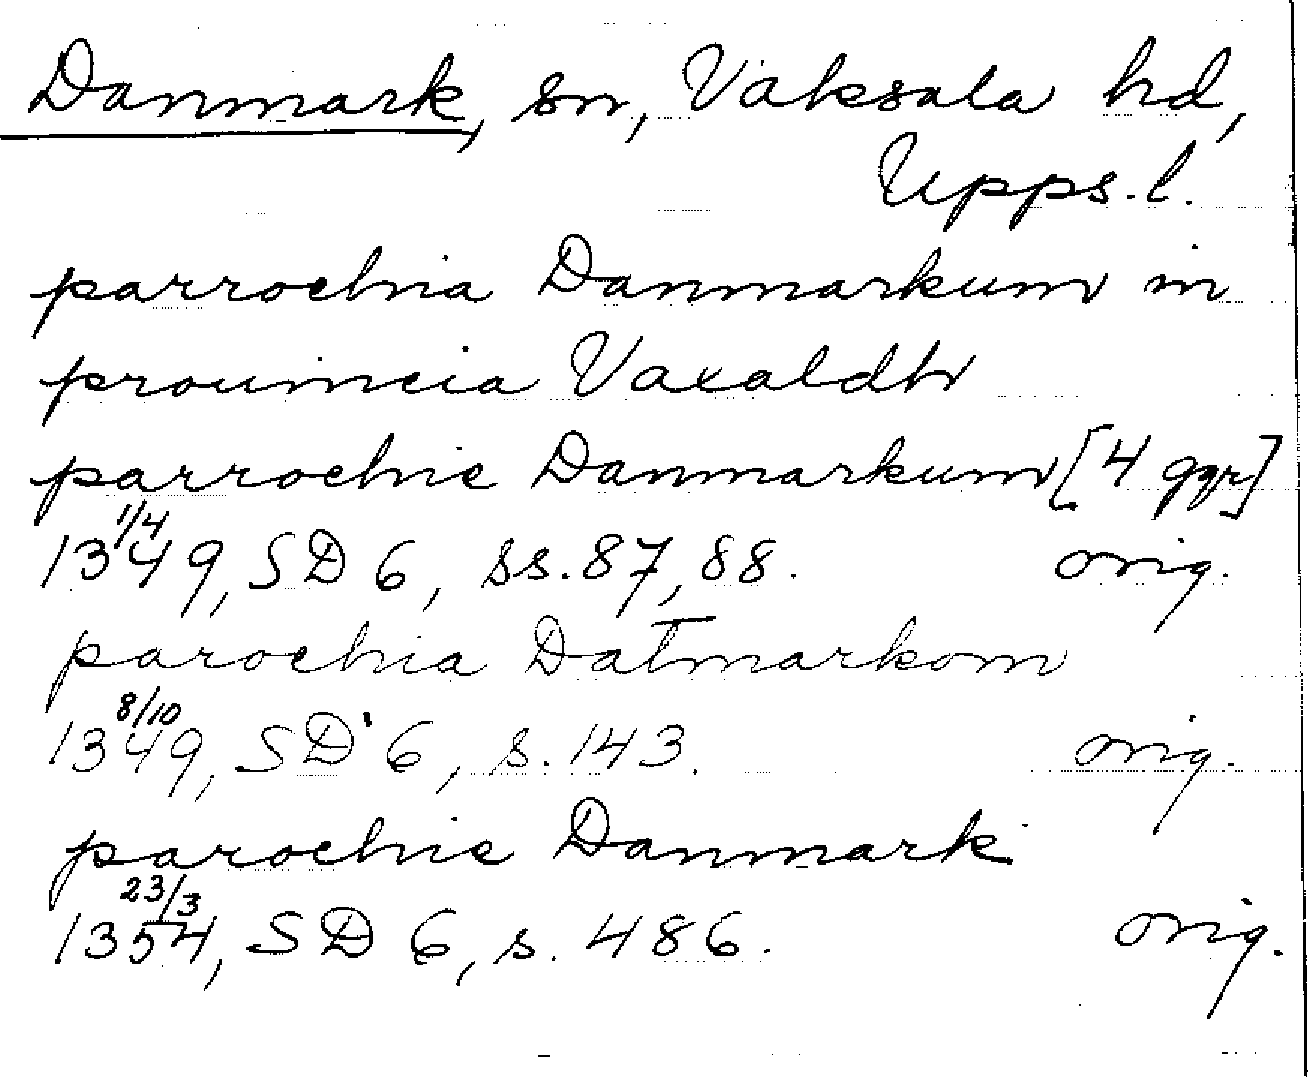 Danmark, sn, Vaksala hd,
Upps. l.
parrochia Danmarkum in
prouincia Vaxaldh
parrochie Danmarkum [4 ggr]
1/4
1349, SD 6, ss. 87, 88. orig.
parochia Datmarkom
8/10
1349, SD 6, s. 143. orig.
parochie Danmark
23/3
1354, SD 6, s. 486. orig.